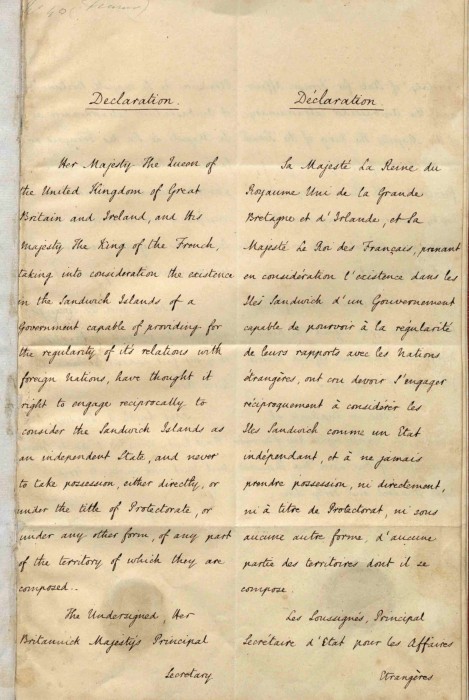 Declaration.
Her Majesty The Queen of
the United Kingdom of Great
Britain and Ireland, and His
Majesty The King of the French,
taking into consideration the existence
in the Sandwich Islands of a
Government capable of providing for
the regularity of it's relations with
foreign Nations, have thought it
right to engage reciprocally to
consider the Sandwich Islands as
an independent State, and never
to take possession, either directly, or
under the title of Protectorate, or
under any other form, of any part
of the territory of which they are
composed..
The Undersigned, Her
Britannick Majesty's Principal
Secretary
Déclaration.
Sa Majesté La Reine du
Royaume Uni de la Grande
Bretagne et d'Irlande, et Sa
Majesté Le Roi des Français, prenant
en considération l'existence dans les
Iles Sandwich d'un Gouvernement
capable de pourvoir à la régularité
de leurs rapports avec les Nations
étrangères, ont cru devoir s'engager
réciproquement à considérer les
Iles Sandwich comme un Etat
indépendant, et à ne jamais
prendre possession, ni directement,
ni à titre de Protectorat, ni sous
aucune autre forme, d'aucune
partie des territoires dont il se
compose.
Les Soussignés, Principal
Secrétaire d'Etat pour les Affaires
Etrangères